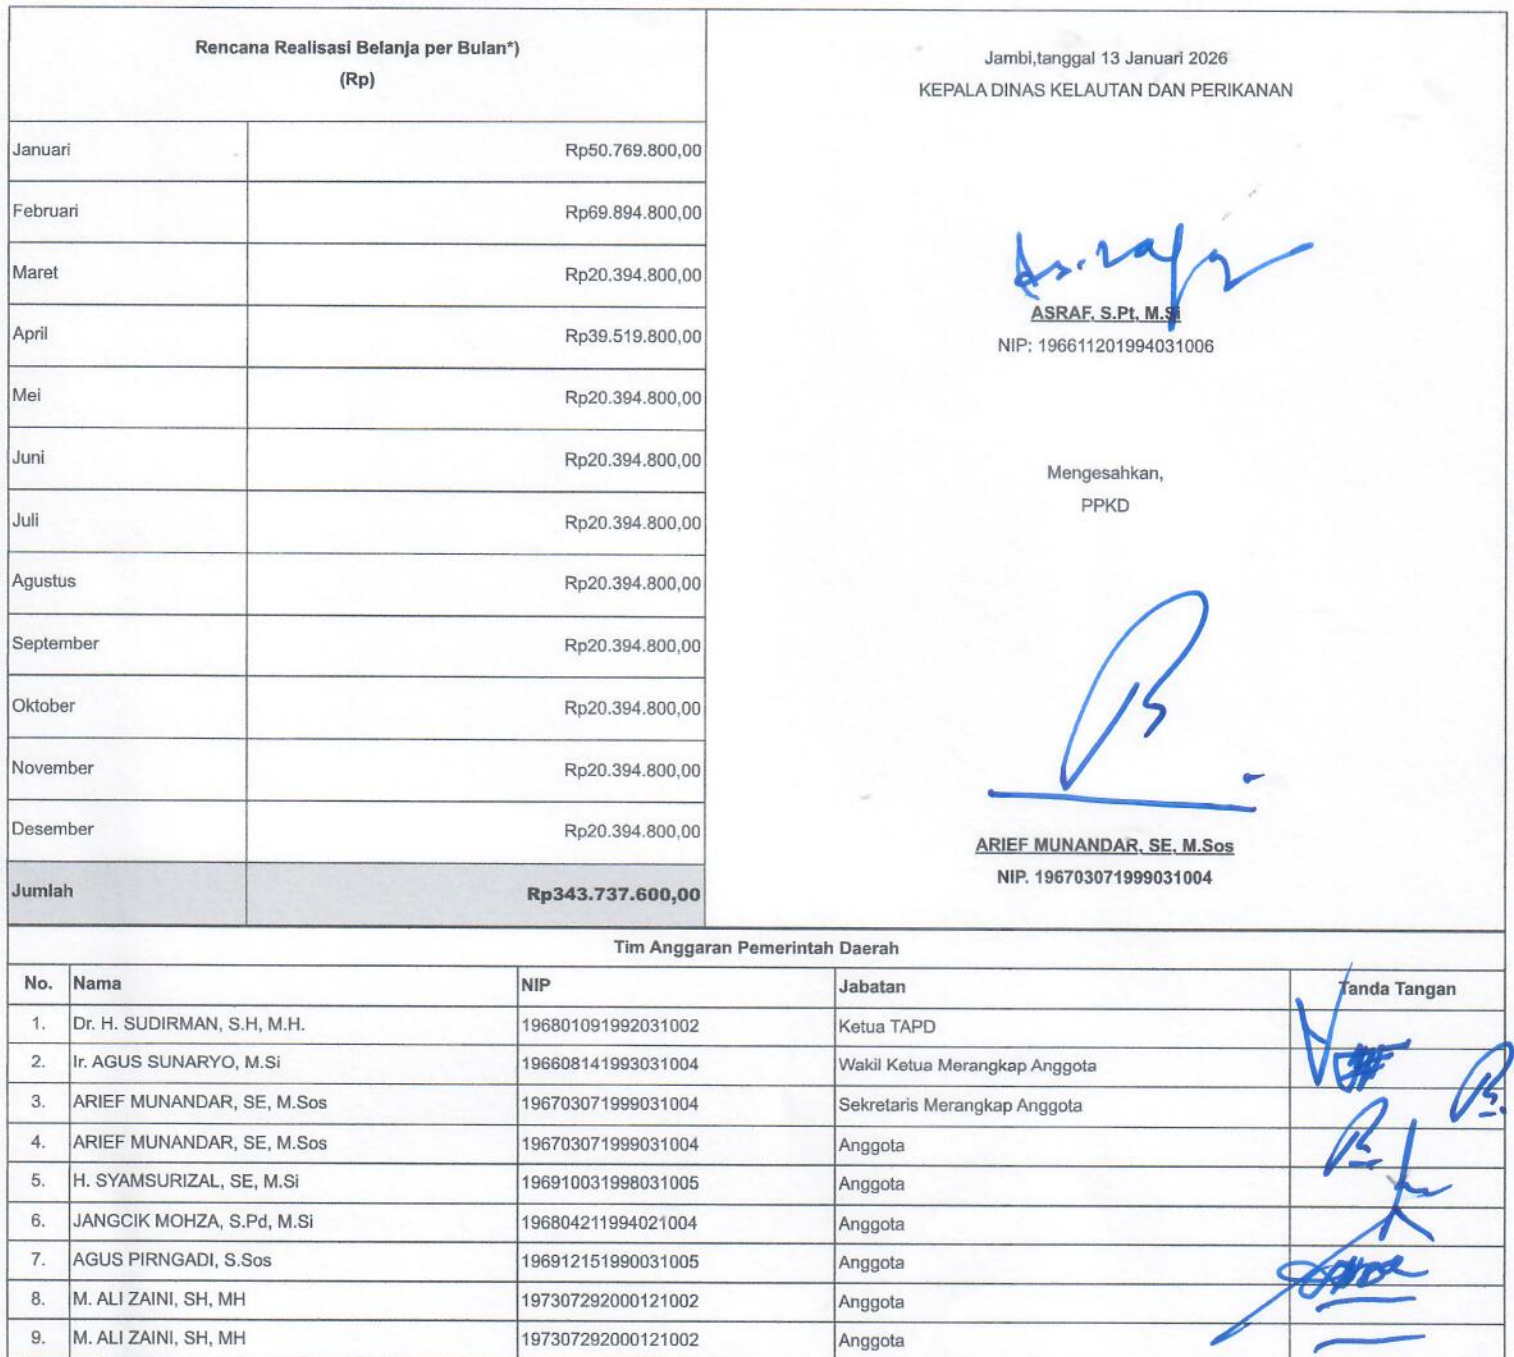 Rencana Realisasi Belanja per Bulan*)
(Rp)
Januari Rp50.769.800,00
Februari Rp69.894.800,00
Maret Rp20.394.800,00
April Rp39.519.800,00
Mei Rp20.394.800,00
Juni Rp20.394.800,00
Juli Rp20.394.800,00
Agustus Rp20.394.800,00
September Rp20.394.800,00
Oktober Rp20.394.800,00
November Rp20.394.800,00
Desember Rp20.394.800,00
Jumlah Rp343.737.600,00
Jambi,tanggal 13 Januari 2026
KEPALA DINAS KELAUTAN DAN PERIKANAN
ASRAF, S.Pt, M.Si
NIP: 196611201994031006
Mengesahkan,
PPKD
ARIEF MUNANDAR, SE, M.Sos
NIP. 196703071999031004
Tim Anggaran Pemerintah Daerah
No. Nama NIP Jabatan Tanda Tangan
1. Dr. H. SUDIRMAN, S.H, M.H. 196801091992031002 Ketua TAPD
2. Ir. AGUS SUNARYO, M.Si 196608141993031004 Wakil Ketua Merangkap Anggota
3. ARIEF MUNANDAR, SE, M.Sos 196703071999031004 Sekretaris Merangkap Anggota
4. ARIEF MUNANDAR, SE, M.Sos 196703071999031004 Anggota
5. H. SYAMSURIZAL, SE, M.Si 196910031998031005 Anggota
6. JANGCIK MOHZA, S.Pd, M.Si 196804211994021004 Anggota
7. AGUS PIRNGADI, S.Sos 196912151990031005 Anggota
8. M. ALI ZAINI, SH, MH 197307292000121002 Anggota
9. M. ALI ZAINI, SH, MH 197307292000121002 Anggota